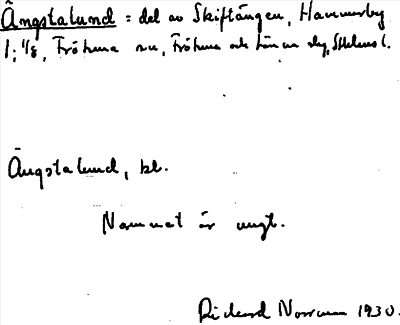 Ängstalund = del av Skiftängen, Hammarby
1:48, Frötuna sn, Frötuna och Länna slg, Sthlms l.
Ängstalund, bl.
Namnet är ungt.
Rickard Norrman 1930.